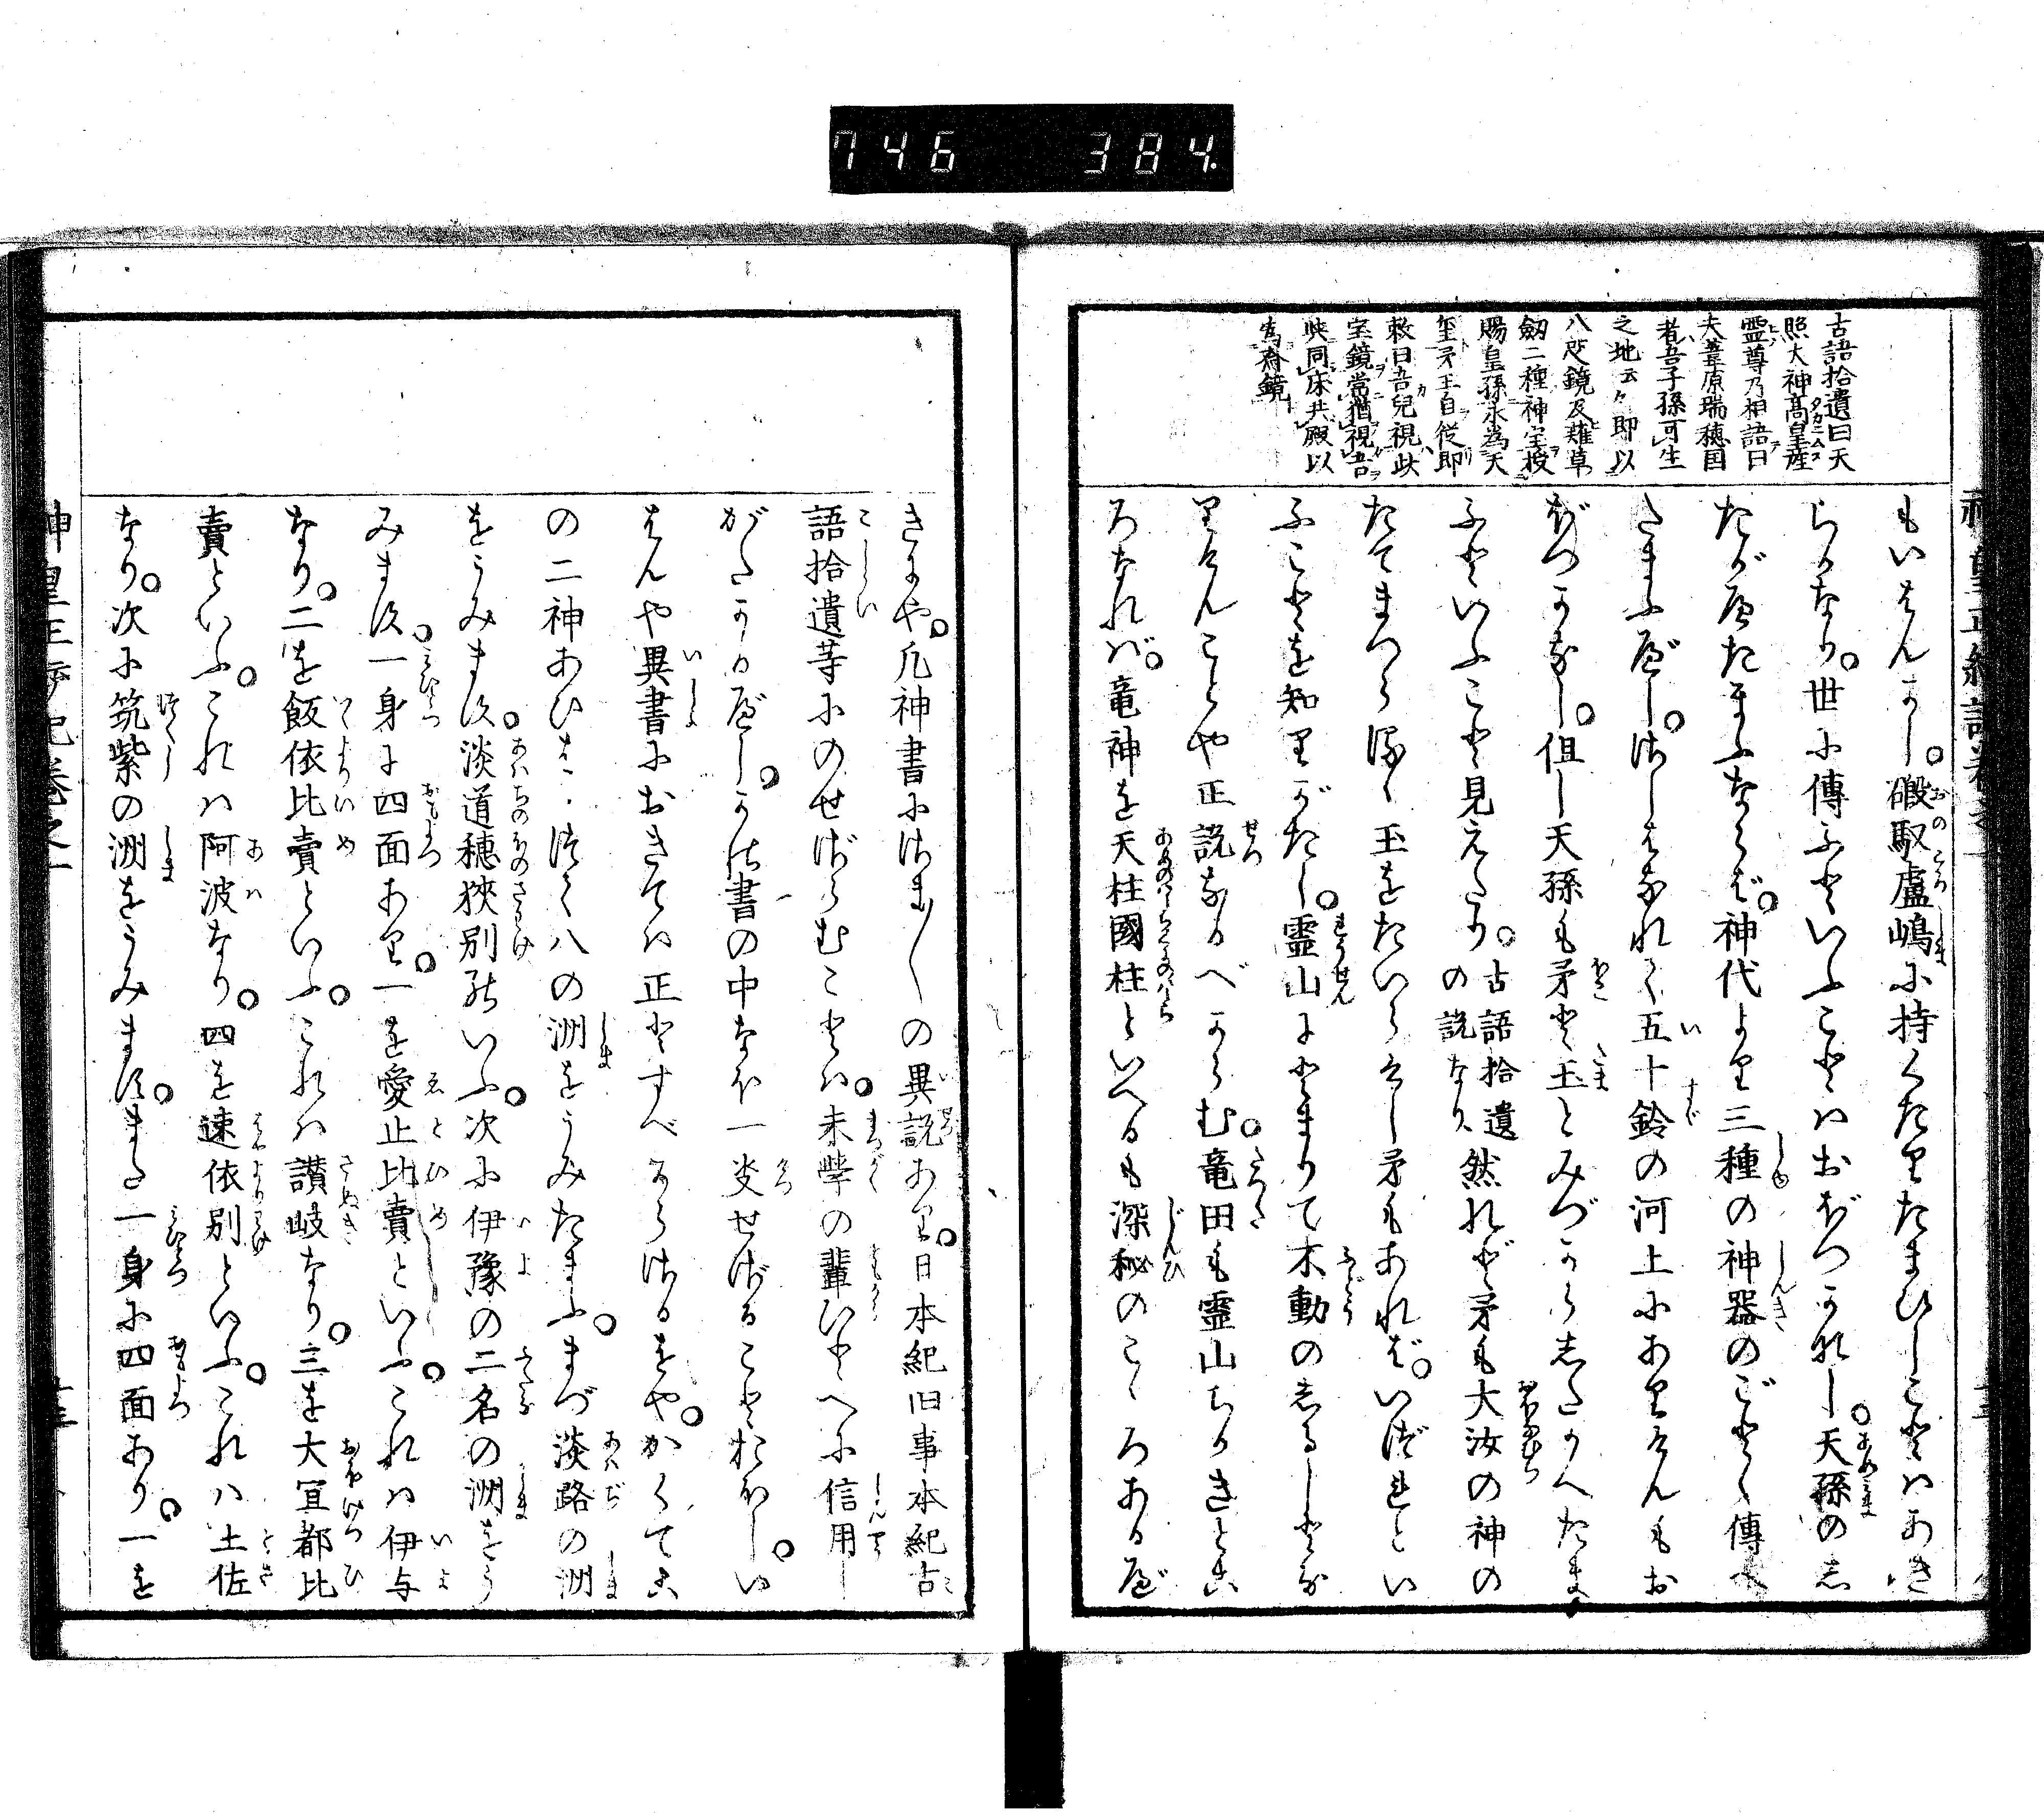 746 384.
古語拾遺曰天
照大神高皇産
霊尊乃相語曰
夫葦原瑞穂国
者吾子孫可生
之地云々即以
八咫鏡及薙草
劔二種神宝授
賜皇孫永為天
璽矛玉自従即
敕曰吾児視此
宝鏡當猶視吾
与同床共殿以
為斎鏡
もいはんかし。磤馭盧嶋に持くたりたまひしことはあき
らかなり。世に傳ふといふことはおぼつかなし。天孫の志
たがひたまふならば。神代より三種の神器のごとく傳へ
たまふべし。さしはなれて五十鈴の河上にありけんもお
ぼつかなし。但し天孫も矛と玉とみづからしたかへたま
ふといふこと見えたり。古語拾遺の説なり然れど矛も大汝の神の
たてまつらるゝ玉をたいらけし矛もあれば。いづれといふ
ことを知りがたし。霊山にとゞまりて不動のしるしとな
りけんことや正説なるべからむ。竜田も霊山ちかきとこ
ろなれば。竜神を天柱國柱といへるも深秘のこゝろあるべ
きにや。凡神書にさま〴〵の異説あり。日本紀旧事本紀古
語拾遺等にのせざらむことは。末学の輩ひとへに信用し
がたかるべし。かの書の中なほ一决せざることおほし。い
はんや異書におきては正とすべからざるをや。かくてこ
の二神あひはからひて八の洲をうみたまふ。まづ淡路の洲
をうみます。淡道穂狭別といふ。次に伊豫の二名の洲をう
みます。一身に四面あり。一を愛止比賣といふ。これは伊与
なり。二を飯依比賣といふ。これは讃岐なり。三を大宜都比
賣といふ。これは阿波なり。四を速依別といふ。これは土佐
なり。次に筑紫の洲をうみます。また一身に四面あり。一を